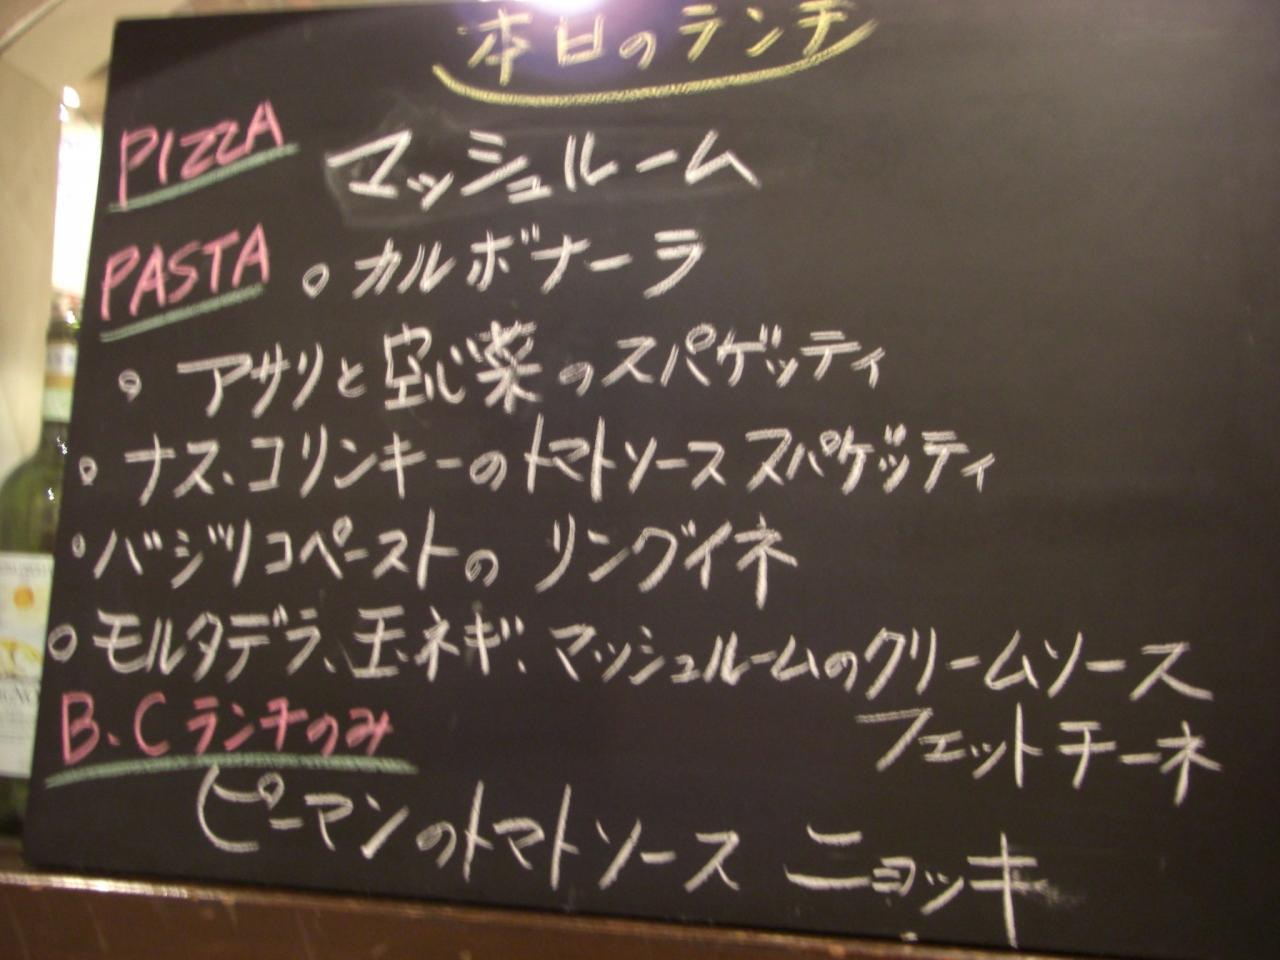 本日のランチ
PIZZA マッシュルーム
PASTA ○ カルボナーラ
○ アサリと空心菜のスパゲッティ
○ ナス、コリンキーのトマトソース スパゲッティ
○ バジリコペーストの リングイネ
○ モルタデラ、玉ネギ、マッシュルームのクリームソース
フェットチーネ
B、Cランチのみ
ピーマンのトマトソース ニョッキ